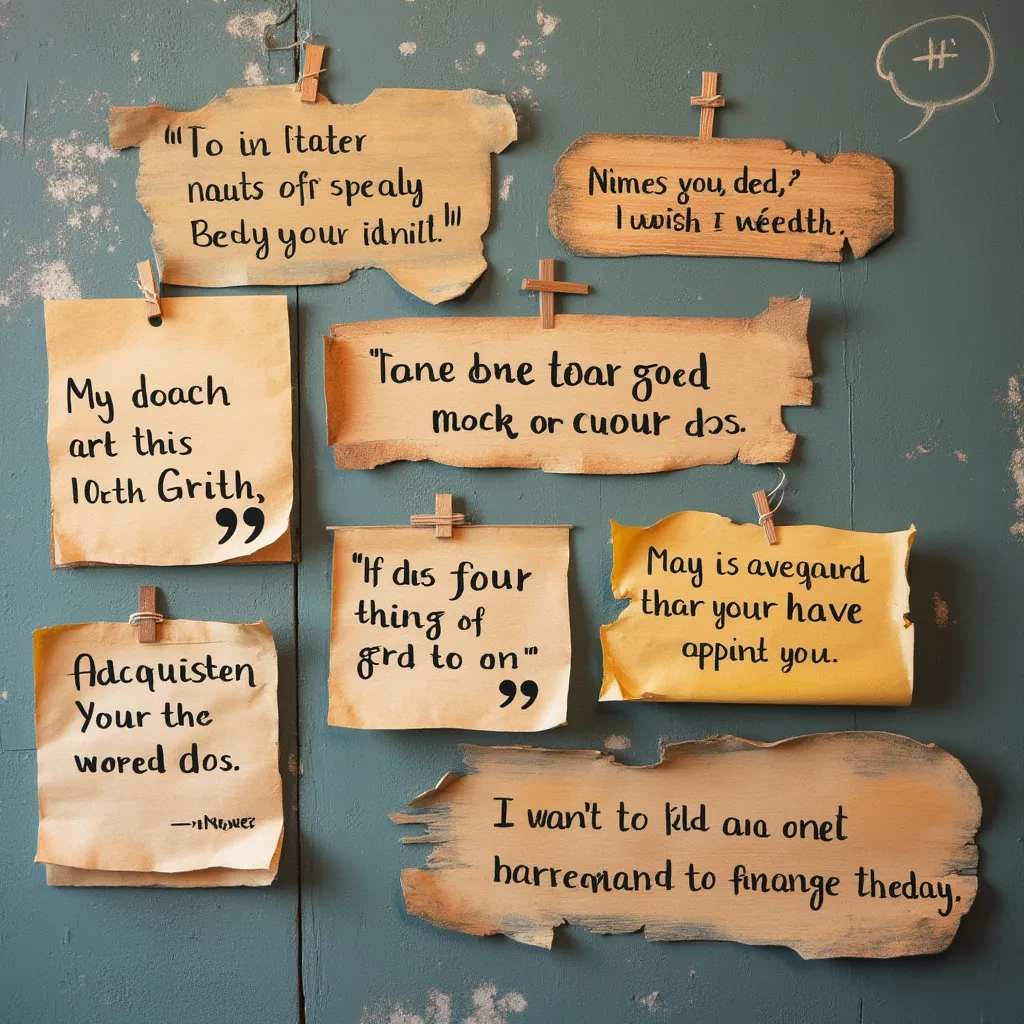 "To in Itater
nauts ofr spealy
Bedy your idnill."
Nimes you, ded,?
I wish I wéedth.
"Tane bne toar goed
mock or cuour dos.
My doach
art this
10cth Grith,
”
"If dis four
thing of
grd to on"
”
May is aveqaurd
thar your have
appint you.
Adcquisten
Your the
wored dos.
I wan't to kld aua onet
to finange theday.